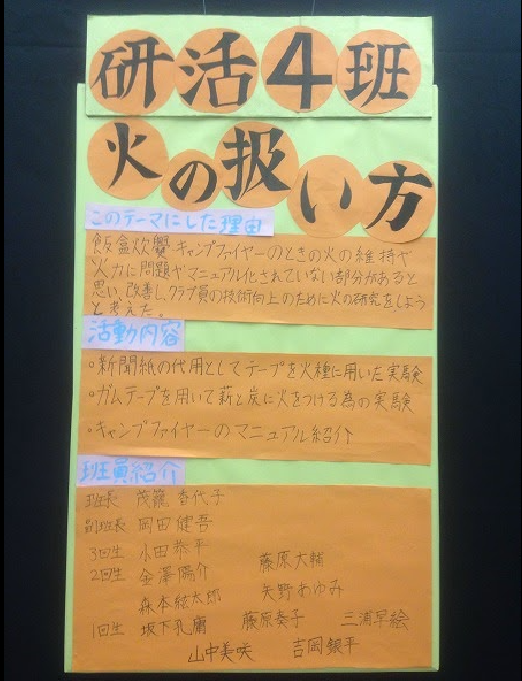 研活4班
火の扱い方
このテーマにした理由
飯盒炊爨、キャンプファイヤーのときの火の維持や
火力に問題やマニュアル化されていない部分があると
思い、改善し、クラブ員の技術向上のために火の研究をしよう
と考えた。
活動内容
・新聞紙の代用としてテープを火種に用いた実験
・ガムテープを用いて薪と炭に火をつける為の実験
・キャンプファイヤーのマニュアル紹介
班員紹介
班長 茂籠 香代子
副班長 岡田健吾
3回生 小田恭平 藤原大輔
2回生 金澤陽介 矢野あゆみ
森本絃太郎
1回生 坂下孔庸 藤原奏子 三浦早絵
山中美咲 吉岡銀平